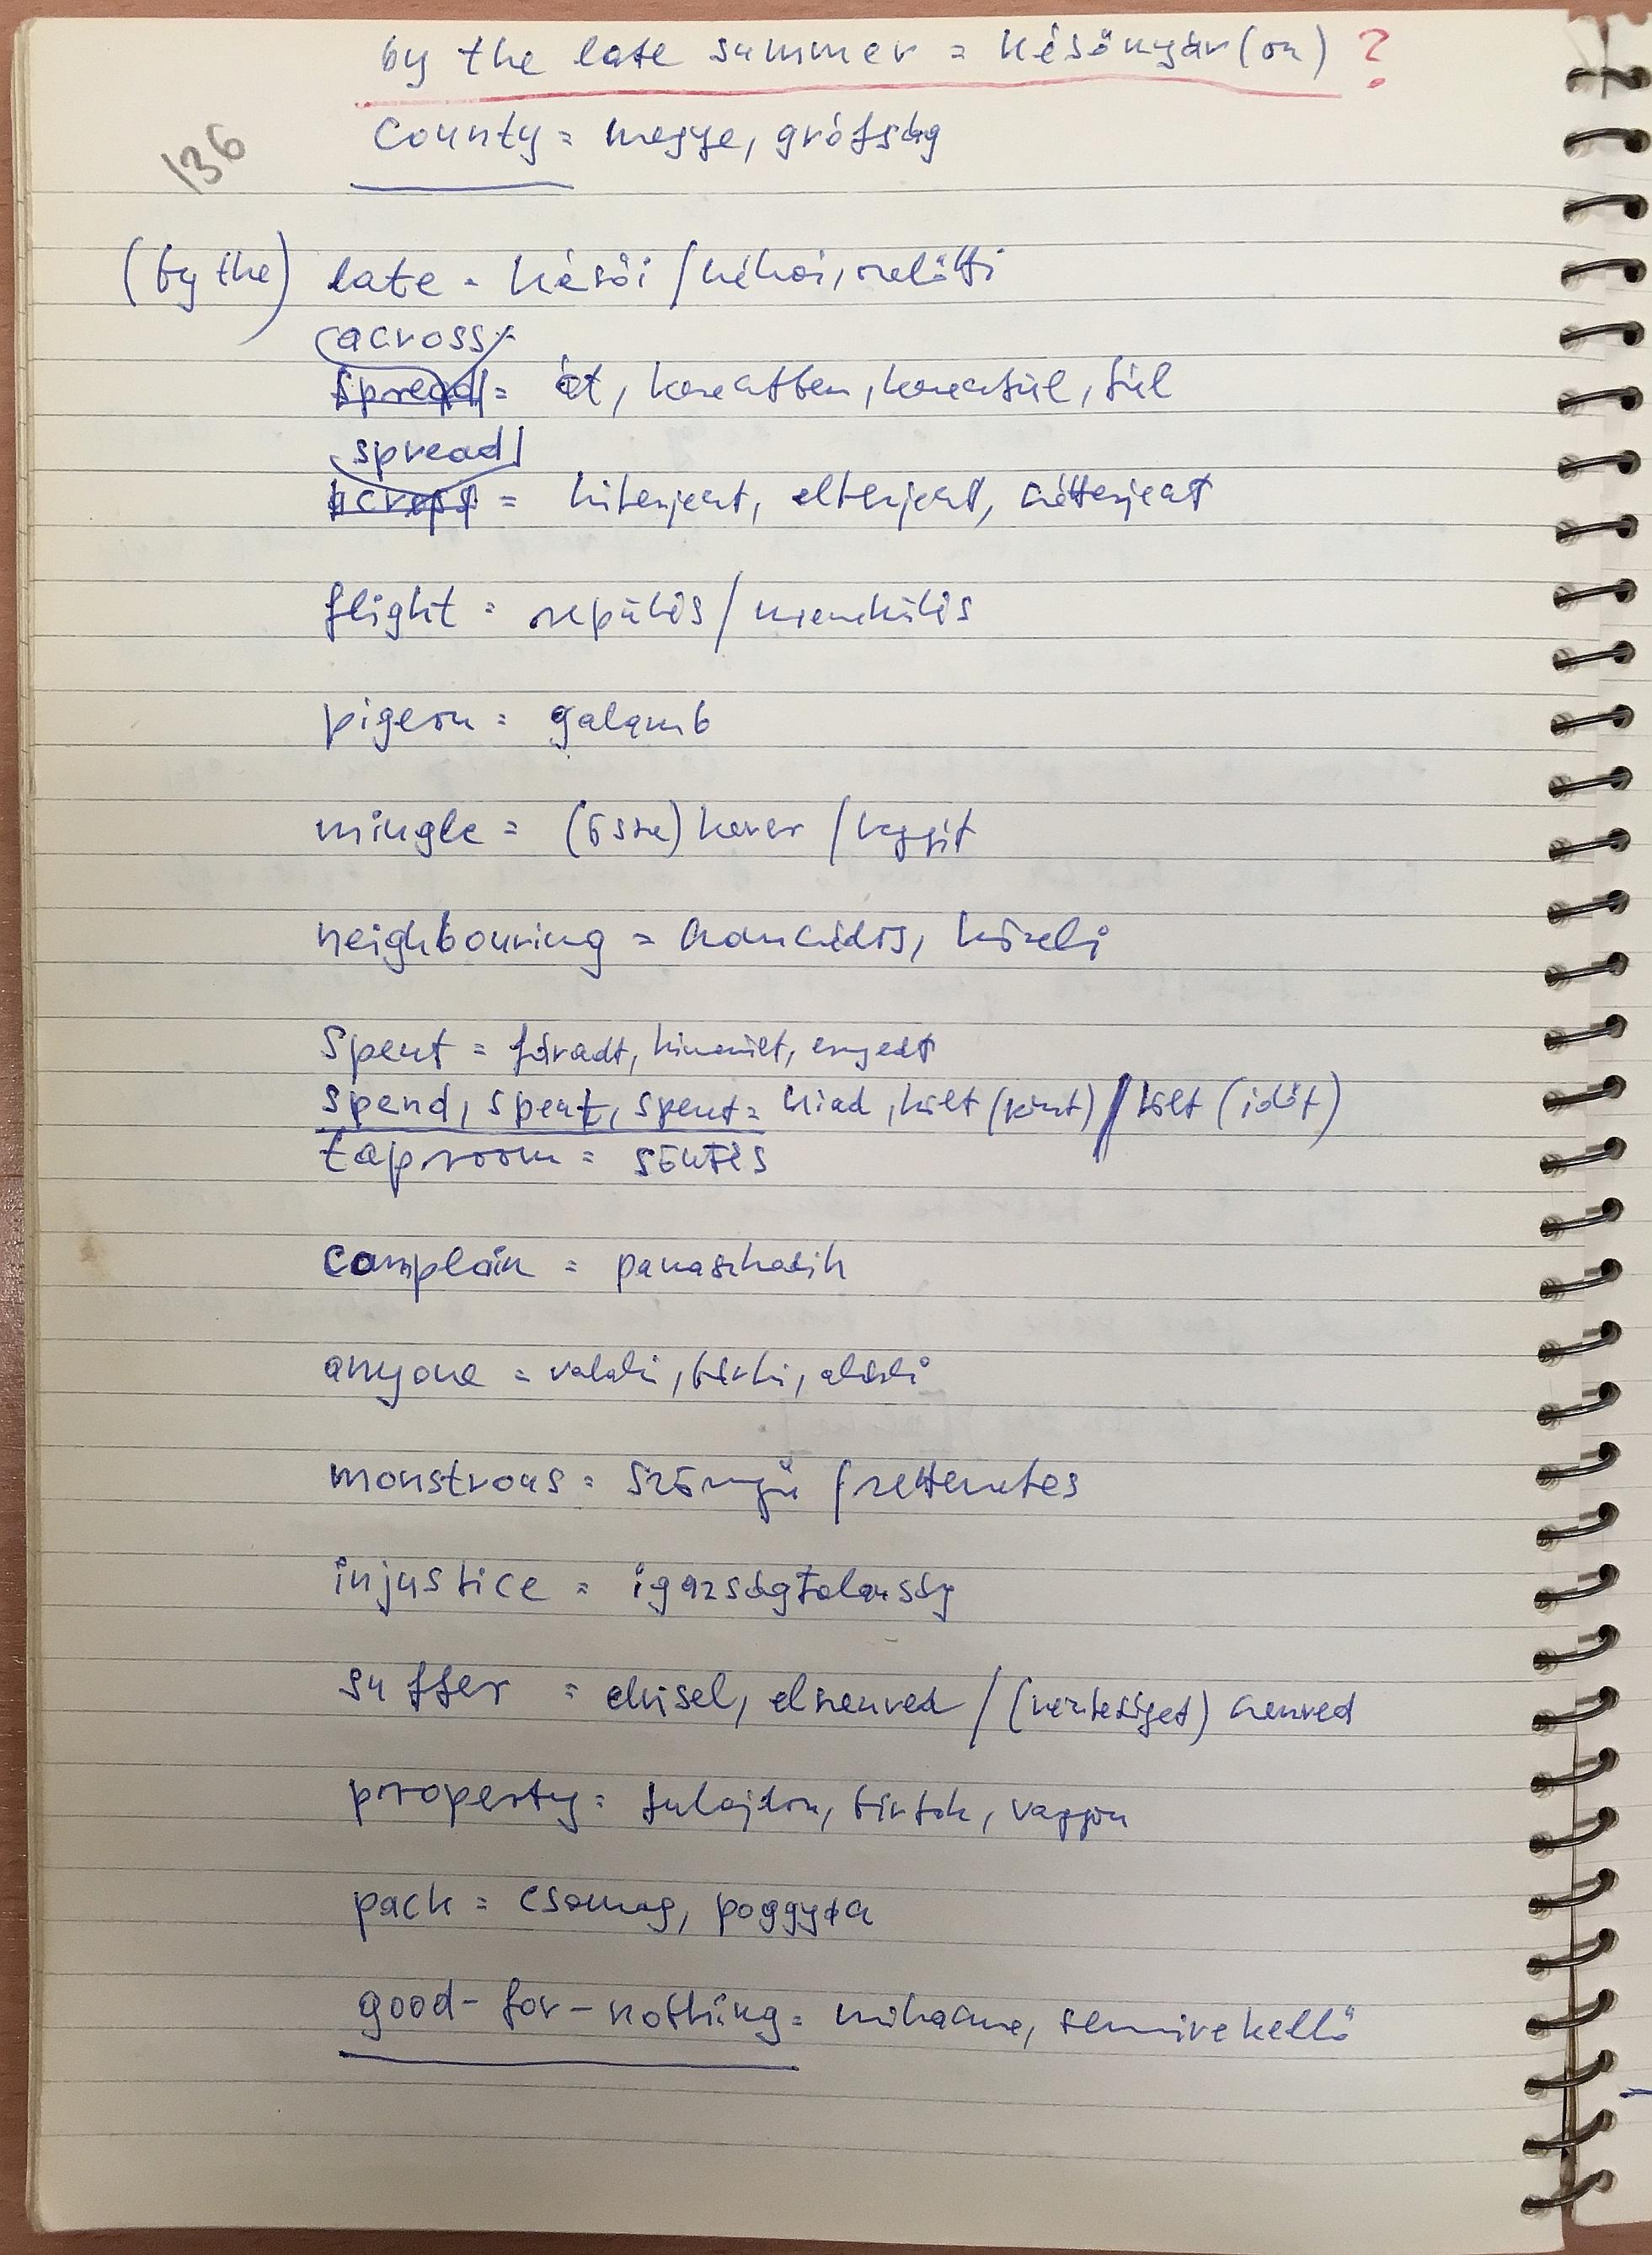 by the late summer = későnyár(on) ?
136
county = megye, grófság
(by the) late = késői / néhai, előtti
across
spread = át, keresztben, keresztül, túl
spread
across = kiterjeszt, elterjeszt, szétterjeszt
flight = repülés / menekülés
pigeon = galamb
mingle = (össze)kever / vegyít
neighbouring = szomszédos, közeli
spent = fáradt, kimerült, engedt
spend, spent, spent = kiad, költ (pénzt) / tölt (időt)
taproom = söntés
complain = panaszkodik
anyone = valaki, bárki, akárki
monstrous = szörnyű / rettenetes
injustice = igazságtalanság
suffer = elvisel, elszenved / (vereséget) szenved
property = tulajdon, birtok, vagyon
pack = csomag, poggyász
good-for-nothing = mihaszna, semmirekellő